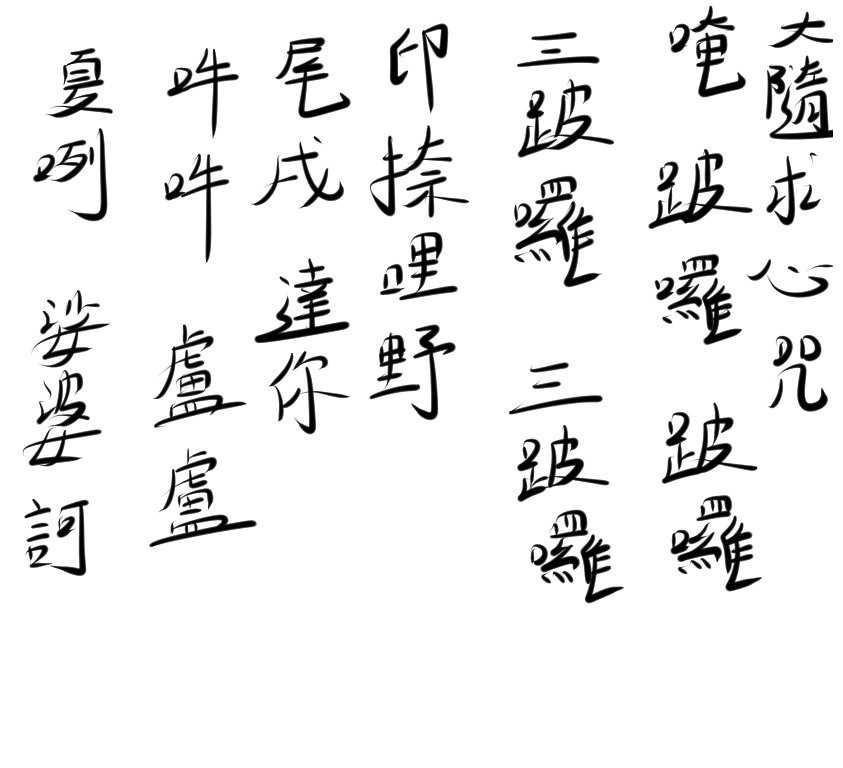 大隨求心咒
唵 跛囉 跛囉
三跛囉 三跛囉
印捺哩野
尾戍 達你
吽吽 盧盧
夏咧 娑婆訶